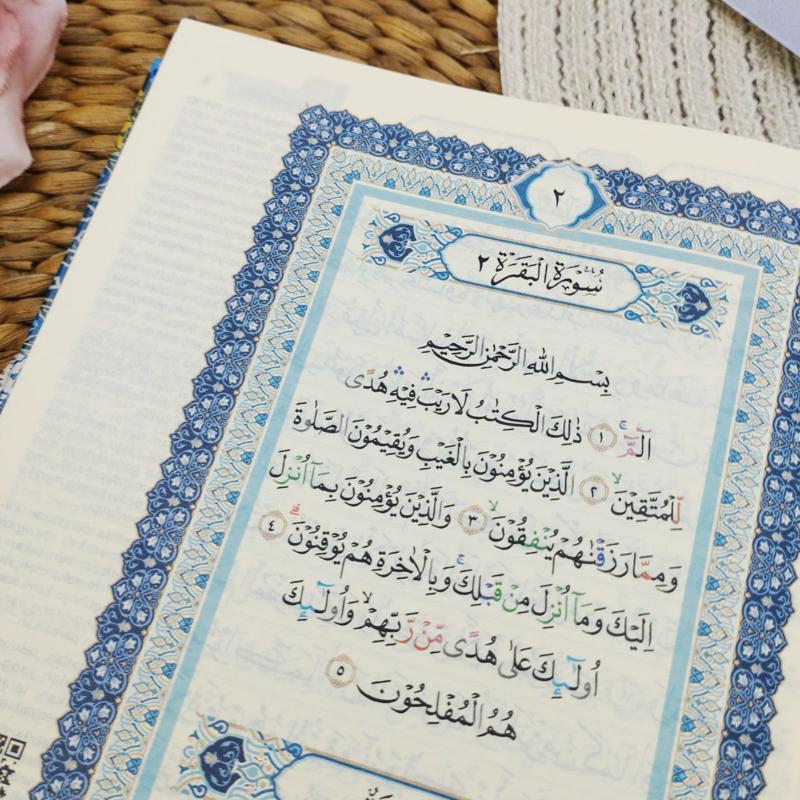 ٢
سُورَةُ الْبَقَرَةِ ٢
بِسْمِ اللّٰهِ الرَّحْمٰنِ الرَّحِيْمِ
الۤمّۤ ۚ ١ ذٰلِكَ الْكِتٰبُ لَا رَيْبَ ۛ فِيْهِ ۛ هُدًى
لِّلْمُتَّقِيْنَ ۙ ٢ الَّذِيْنَ يُؤْمِنُوْنَ بِالْغَيْبِ وَيُقِيْمُوْنَ الصَّلٰوةَ
وَمِمَّا رَزَقْنٰهُمْ يُنْفِقُوْنَ ۙ ٣ وَالَّذِيْنَ يُؤْمِنُوْنَ بِمَآ اُنْزِلَ
اِلَيْكَ وَمَآ اُنْزِلَ مِنْ قَبْلِكَ ۚ وَبِالْاٰخِرَةِ هُمْ يُوْقِنُوْنَ ۗ ٤
اُولٰۤىِٕكَ عَلٰى هُدًى مِّنْ رَّبِّهِمْ ۙ وَاُولٰۤىِٕكَ
هُمُ الْمُفْلِحُوْنَ ٥